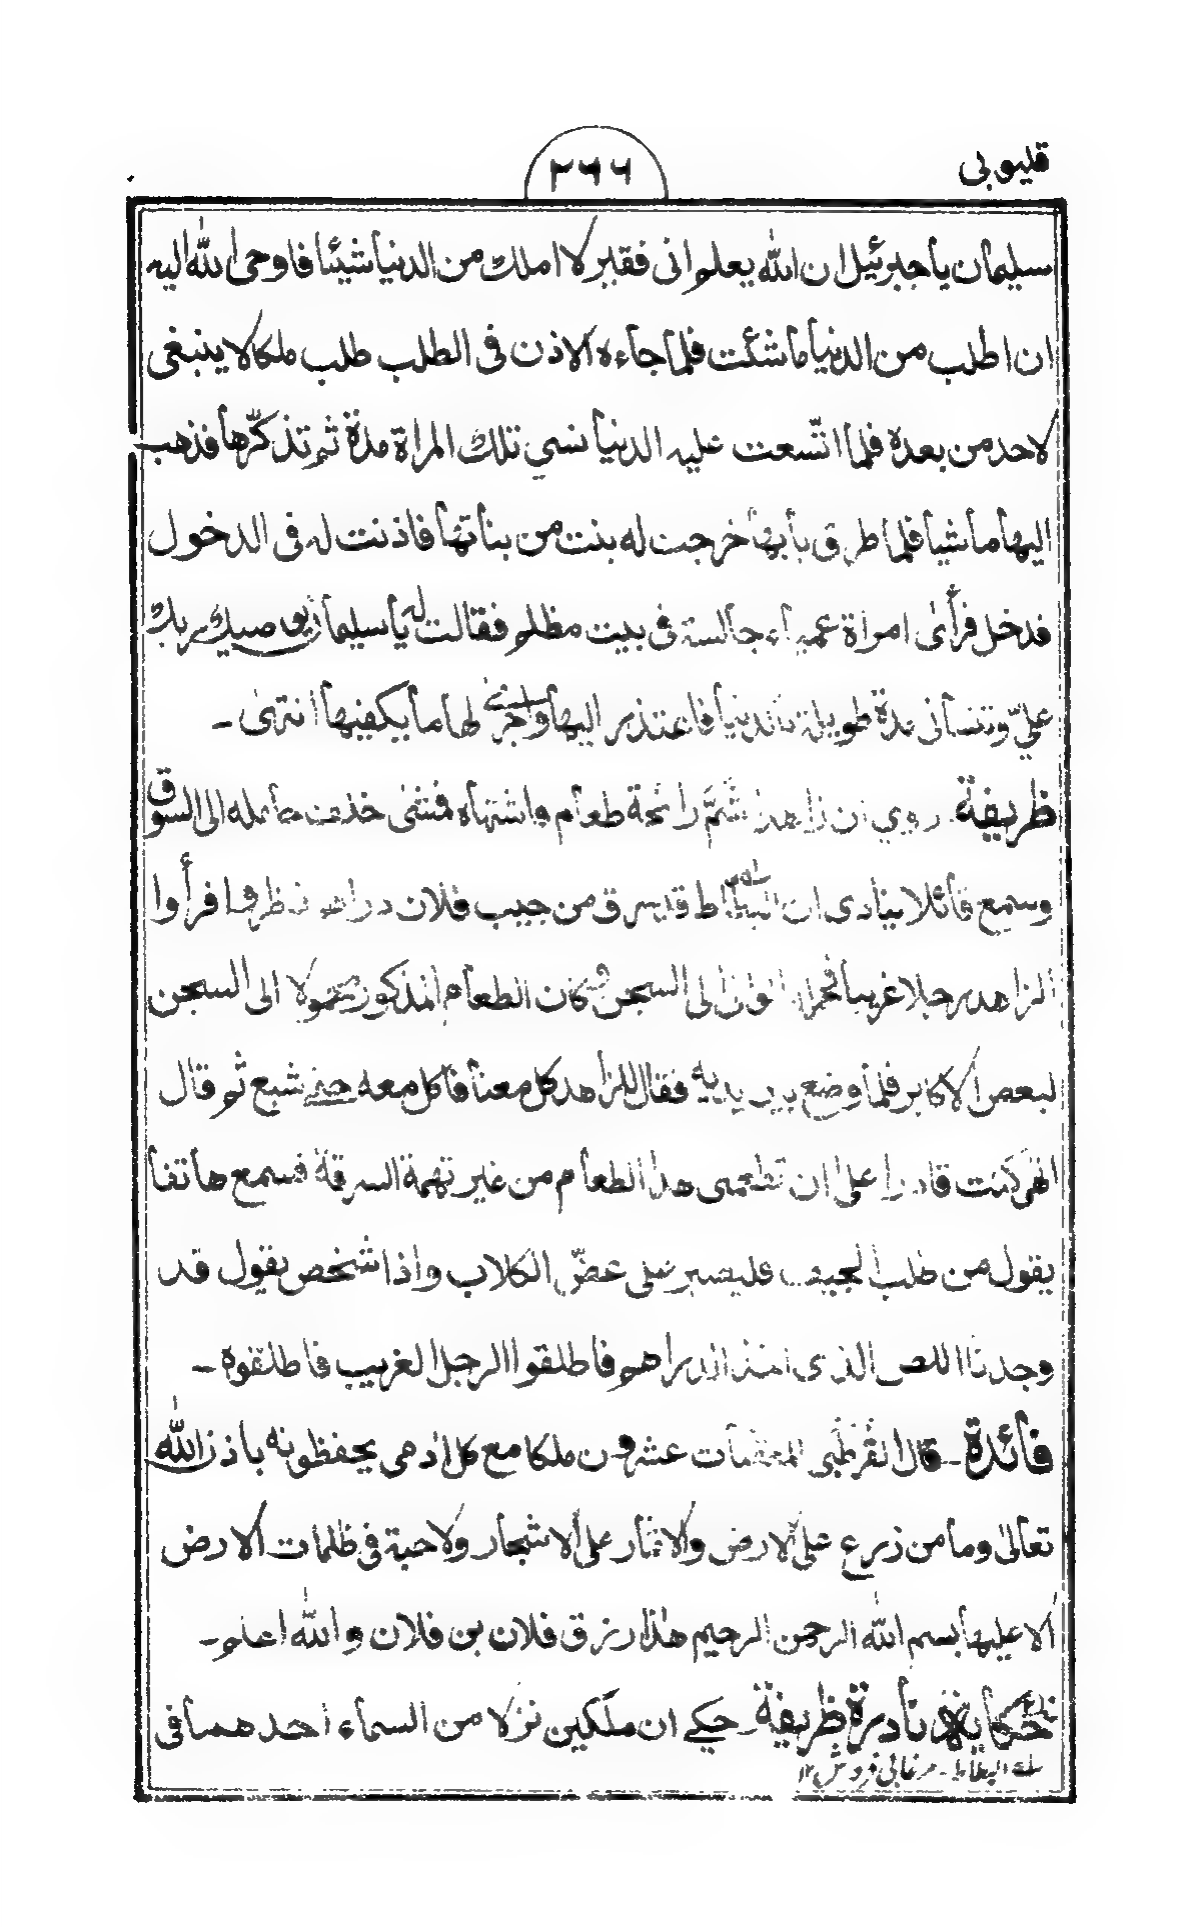 قليوبى
٢٦٦
سليمان يا جبرئيل ان الله يعلم انى فقير لا املك من الدنيا شيئا فاوحى الله اليه
ان اطلب من الدنيا ما شئت فلما جاءه الاذن فى الطلب طلب ملكا لا ينبغى
لاحد من بعده فلما اتّسعت عليه الدنيا نسي تلك المراة مدة ثم تذكّرها فذهب
اليها ماشيا فلما طرق بابها خرجت له بنت من بناتها فاذنت له فى الدخول
فدخل فرأى امراة عمياء جالسة فى بيت مظلم فقالت له يا سليمان يوصيك ربك
علىّ وتنسانى مدة طويلة بالدنيا فاعتذر اليها واجرى لها ما يكفيها انتهى ـ
ظريفة روي ان زاهدا شمَّ رائحة طعام واشتهاه فمشى خلف حامله الى السوق
وسمع قائلا ينادى ان البطاط قد سرق من جيب فلان دراهم فنظروا فرأوا
الزاهد رجلا غريبا فحملوه الى السجن وكان الطعام المذكور محمولا الى السجن
لبعض الاكابر فلما وضع بين يديه فقال للزاهد كل معنا فاكل معه حتى شبع ثم قال
الهى كنت قادرا على ان تطعمنى هذا الطعام من غير تهمة السرقة فسمع هاتفا
يقول من طلب الجيف فليصبر على عضّ الكلاب واذا شخص يقول قد
وجدنا اللص الذى اخذ الدراهم فاطلقوا الرجل الغريب فاطلقوه ـ
فائدة ـ قال القرطبى المعقبات عشرون ملكا مع كل ادمى يحفظونه باذن الله
تعالى وما من زرع على الارض ولا ثمار على الاشجار ولا حبة فى ظلمات الارض
الا عليها بسم الله الرحمن الرحيم هذا رزق فلان بن فلان والله اعلم ـ
حكاية نادرة ظريفة حكے ان ملكين نزلا من السماء احدهما فى
البطاط ـ مرغابى فروش ١٢